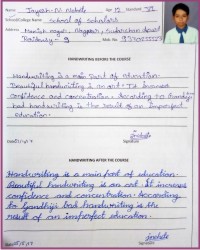 Name Jayesh M. Nakate Age 12 Handset
School/College Name School of Scholars
Address Manish nagar, Nagpur,
HANDWRITING BEFORE THE COURSE
Handwriting is a main part of education.
Beautiful handwriting is an art. It increases
confidence and concentration. According to Gandhiji
bad handwriting is the result of an imperfect
education.
HANDWRITING AFTER THE COURSE
Handwriting is a main part of education.
Beautiful handwriting is an art. It increases
confidence and concentration. According
to Gandhiji bad handwriting is the
result of an imperfect education.